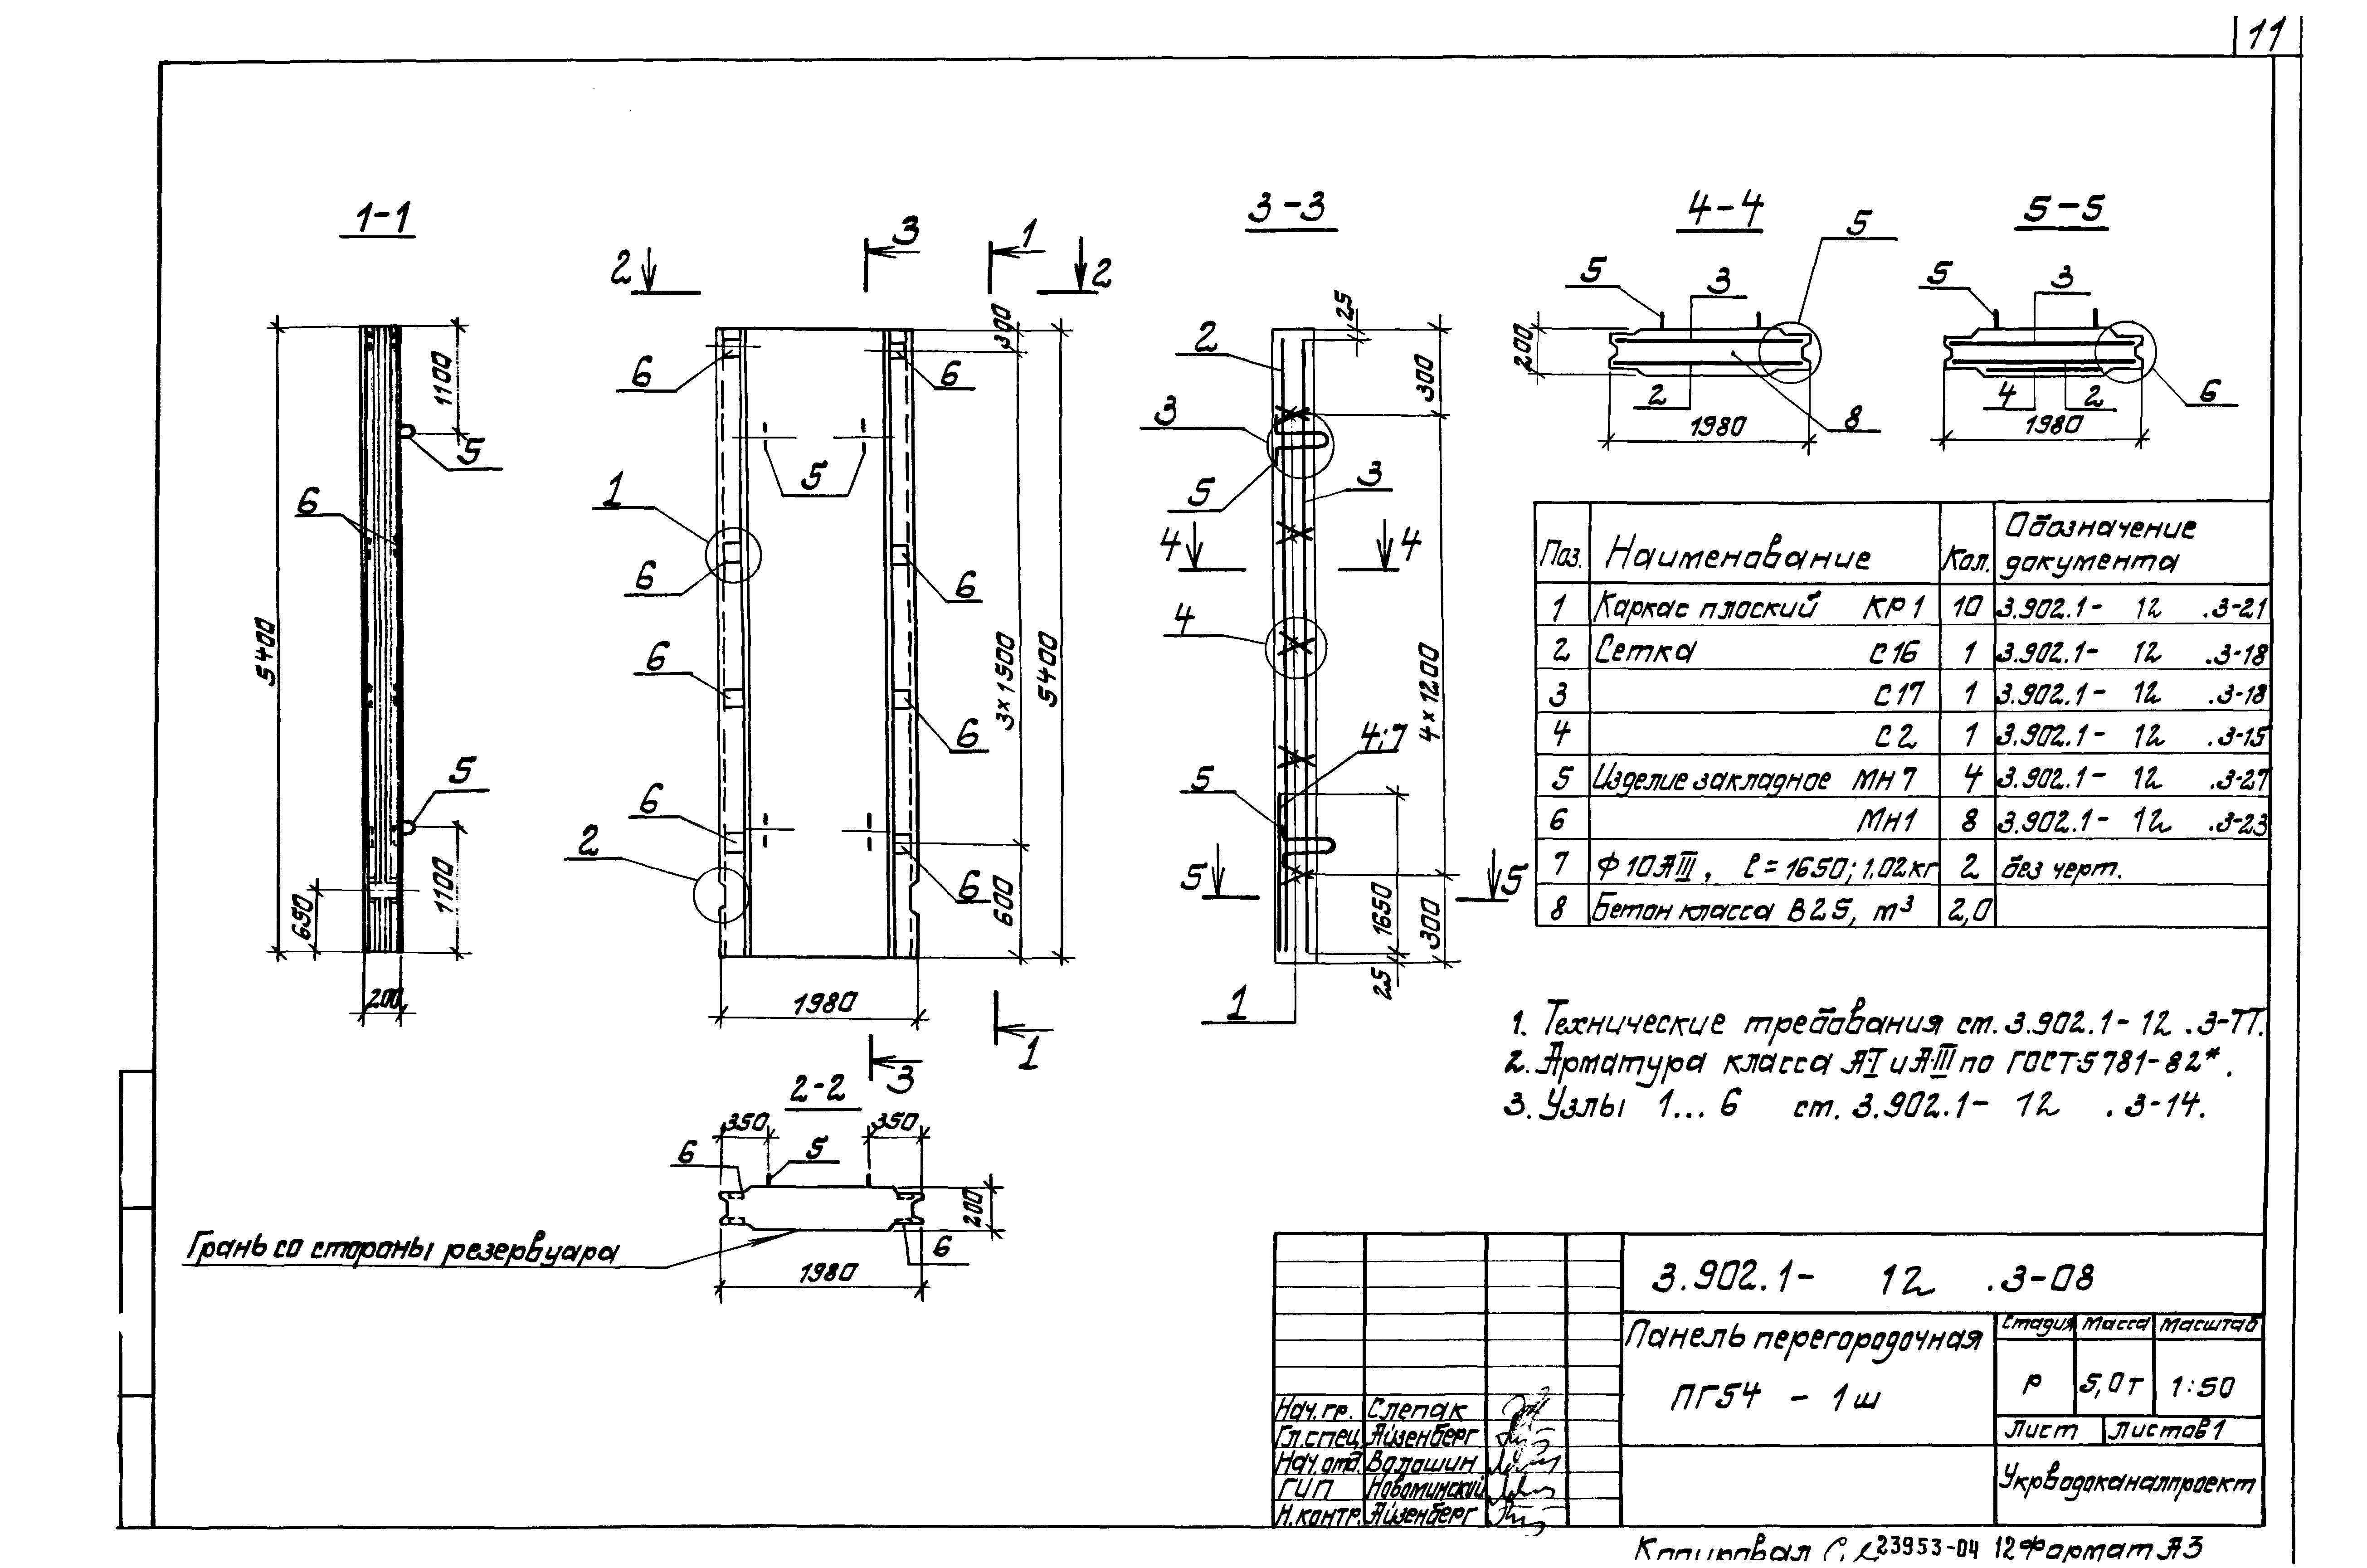 11
1-1
5400
1100
5
6
5
1100
650
200
2
3
1
2
300
6
6
5
1
6
6
6
6
6
2
6
3×1500
5400
600
1980
3
1
2-2
350
350
6
5
200
6
1980
Грань со стороны резервуара
3-3
25
2
300
3
5
3
4
4
4
4×1200
4;7
5
5
5
1650
300
25
1
4-4
5
5
3
200
2
8
1980
5-5
5
3
4
2
6
1980
Поз. Наименование Кол. Обозначение документа
1 Каркас плоский КР1 10 3.902.1- 12 .3-21
2 Сетка С16 1 3.902.1- 12 .3-18
3 С17 1 3.902.1- 12 .3-18
4 С2 1 3.902.1- 12 .3-15
5 Изделие закладное МН7 4 3.902.1- 12 .3-27
6 МН1 8 3.902.1- 12 .3-23
7 Ф10АIII, ℓ=1650; 1.02кг 2 без черт.
8 Бетон класса В25, м³ 2,0
1. Технические требования см. 3.902.1- 12 .3-ТТ.
2. Арматура класса А-I и А-III по ГОСТ 5781-82*.
3. Узлы 1...6 см. 3.902.1- 12 .3-14.
3.902.1- 12 .3-08
Панель перегородочная
ПГ54 - 1ш
Стадия Масса Масштаб
Р 5,0т 1:50
Лист Листов 1
Укрводоканалпроект
Нач.гр. Слепак
Гл.спец. Айзенберг
Нач.отд. Волошин
ГИП Новоминский
Н.контр. Айзенберг
Копировал 23953-04 12 Формат А3